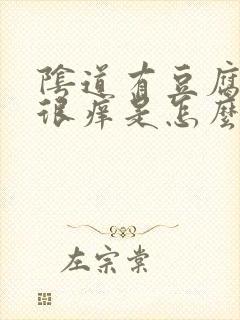 陰道有豆腐
很痒是怎麼
左宗棠